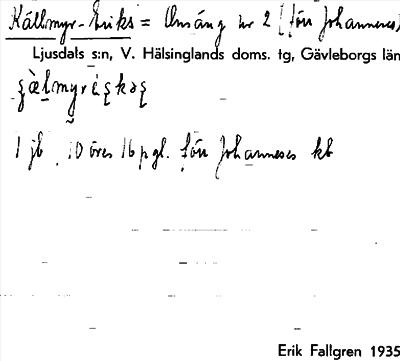 Källmyr-Eriks = Onsäng nr 2 (förr Johanneses)
Ljusdals s:n, V. Hälsinglands doms. tg, Gävleborgs län
1 jb 10 öres 16 pgl. förr Johanneses kb
Erik Fallgren 1935